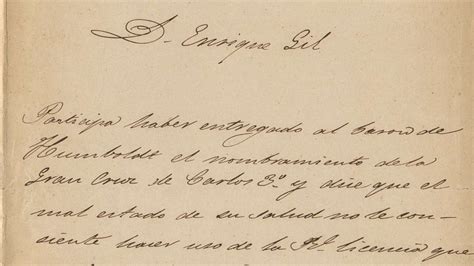 D. Enrique Gil
Participa haber entregado al baron de
Humboldt el nombramiento de la
Gran Cruz de Carlos 3º y dice que el
mal estado de su salud no le con-
siente hacer uso de la Rl. licencia que